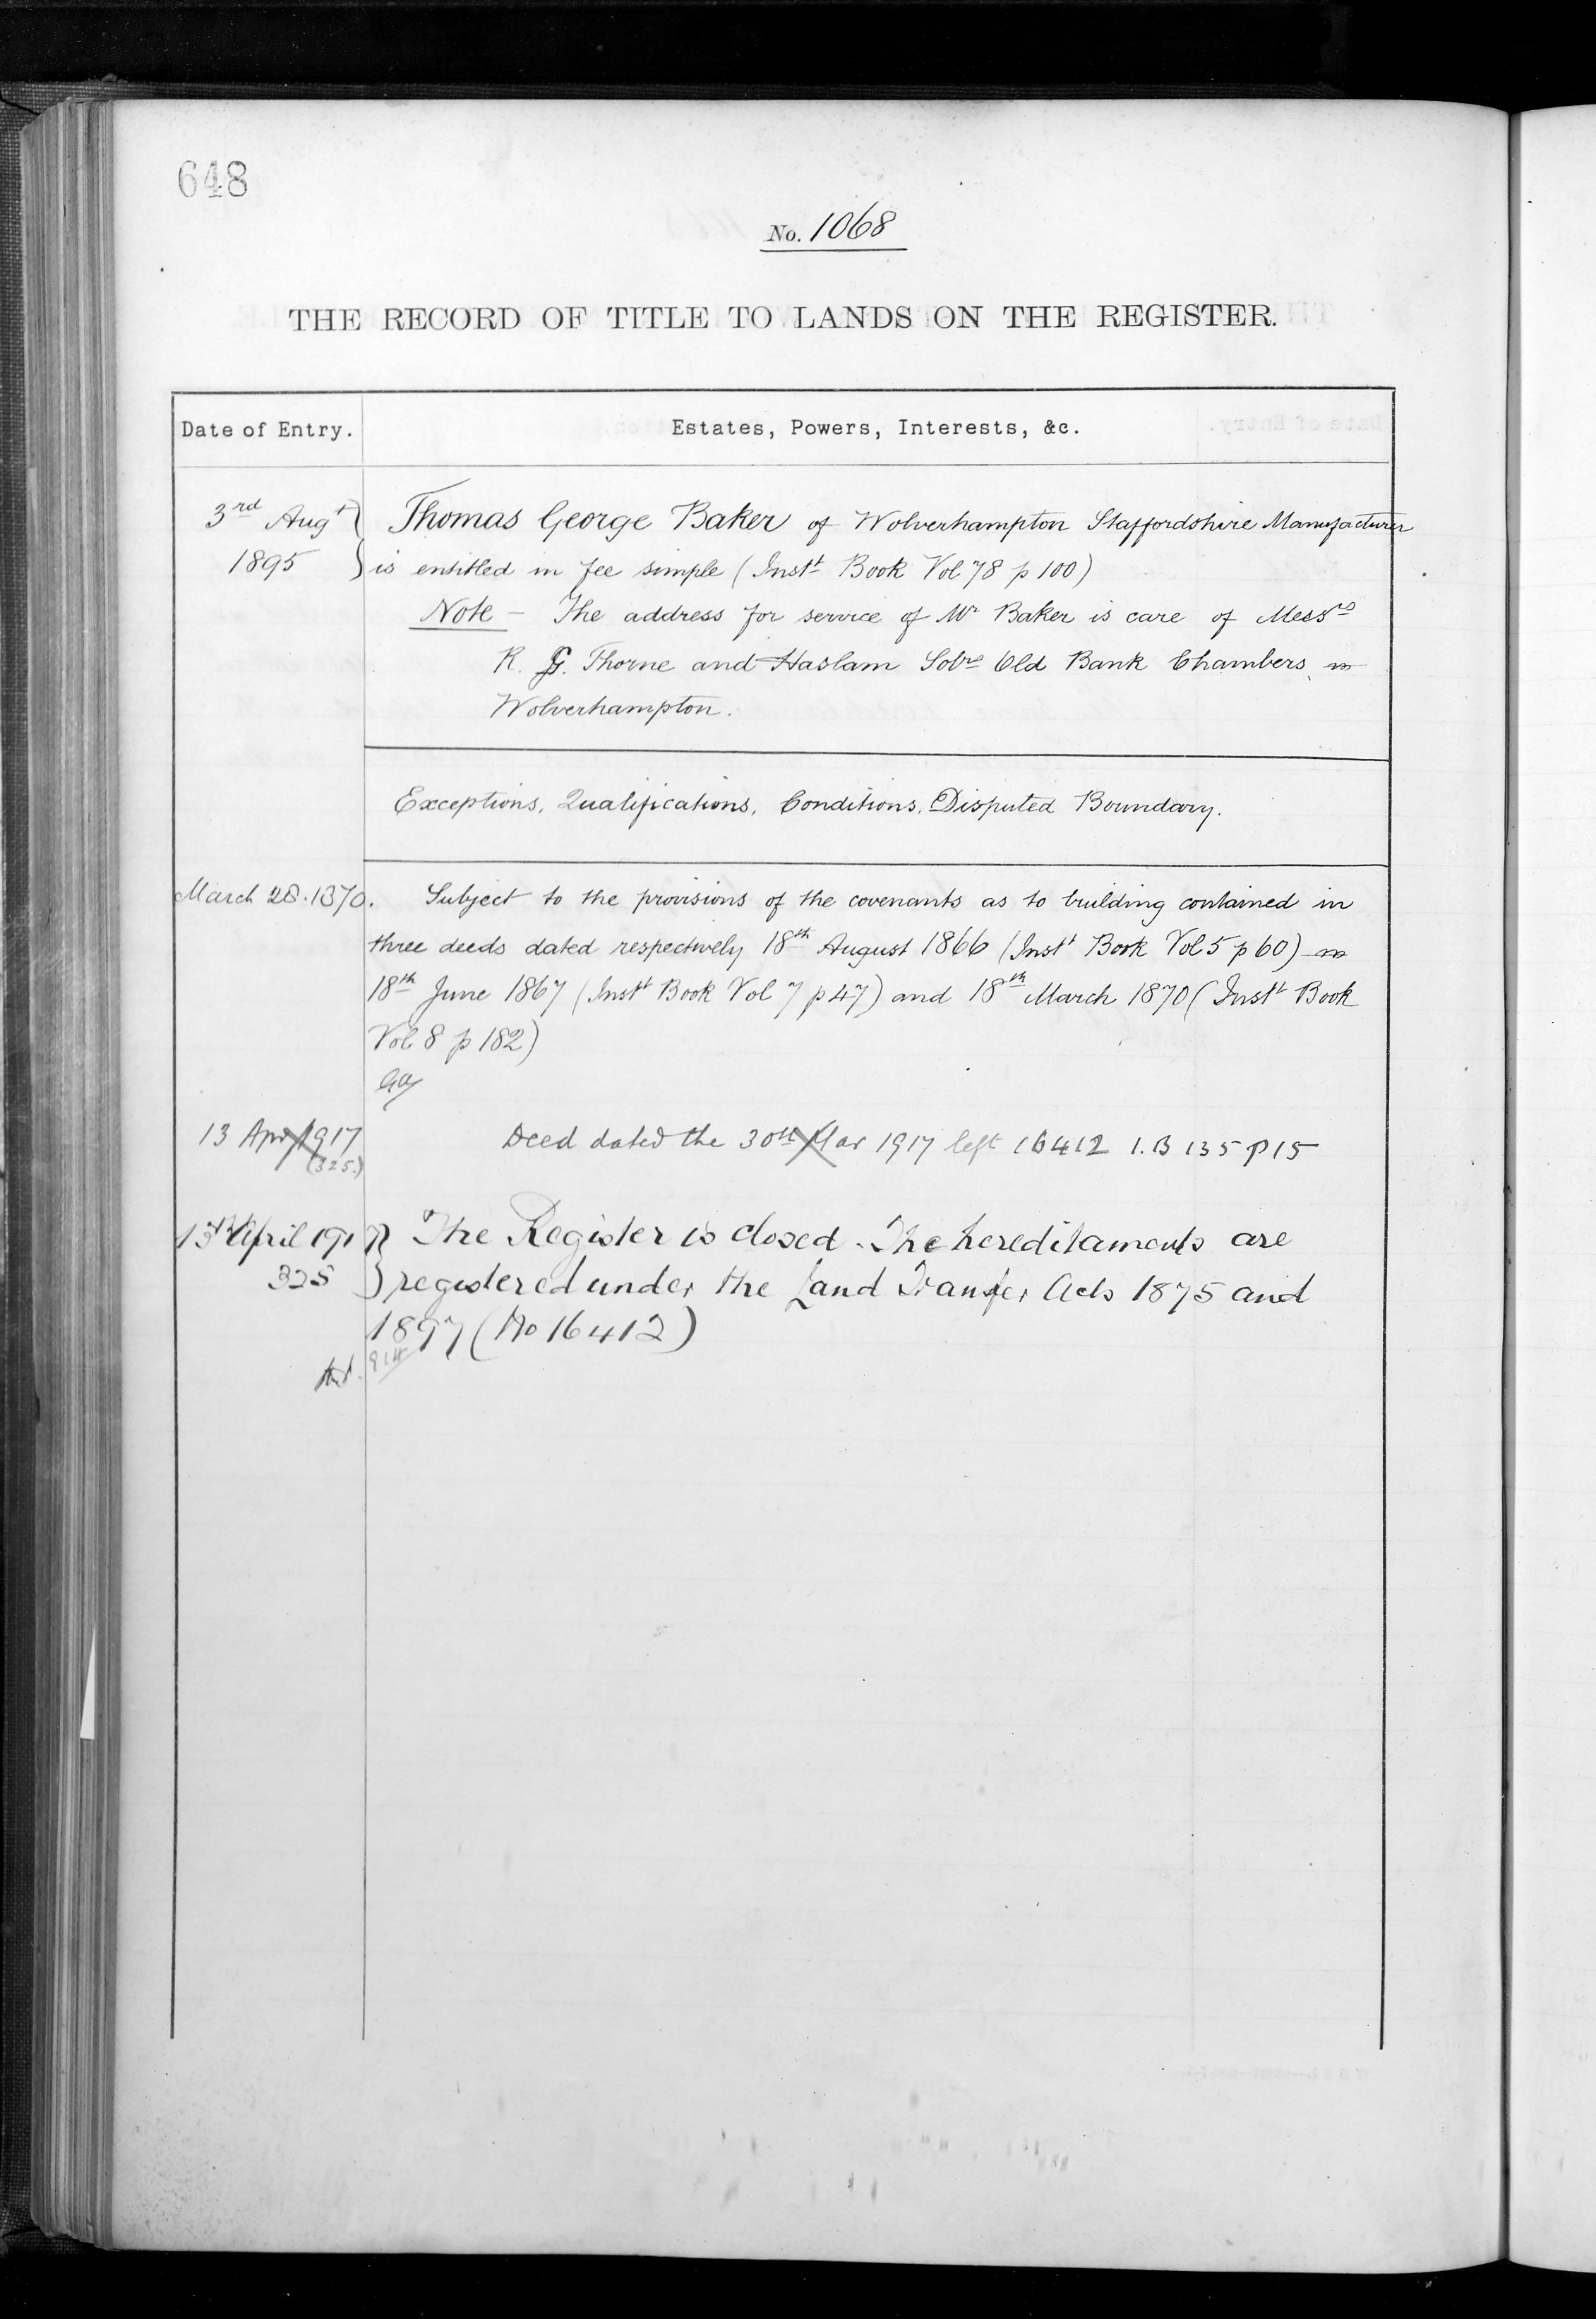 648
No. 1068
THE RECORD OF TITLE TO LANDS ON THE REGISTER.
Date of Entry. Estates, Powers, Interests, &c.
3rd Augt Thomas George Baker of Wolverhampton Staffordshire Manufacturer
1895 is entitled in fee simple (Instt Book Vol 78 p 100)
Note – The address for service of Mr Baker is care of Messrs
R. G. Thorne and Haslam Solrs Old Bank Chambers
Wolverhampton.
Exceptions, Qualifications, Conditions, Disputed Boundary.
March 28. 1870. Subject to the provisions of the covenants as to building contained in
three deeds dated respectively 18th August 1866 (Instt Book Vol 5 p 60)
18th June 1867 (Instt Book Vol 7 p 47) and 18th March 1870 (Instt Book
Vol 8 p 182)
13 Apr 1917 Deed dated the 30th Mar 1917 left 16412 I.B 135 P15
(325.)
13th April 1917 The Register is closed. The hereditaments are
325 registered under the Land Transfer Acts 1875 and
1897 (No 16412)
914